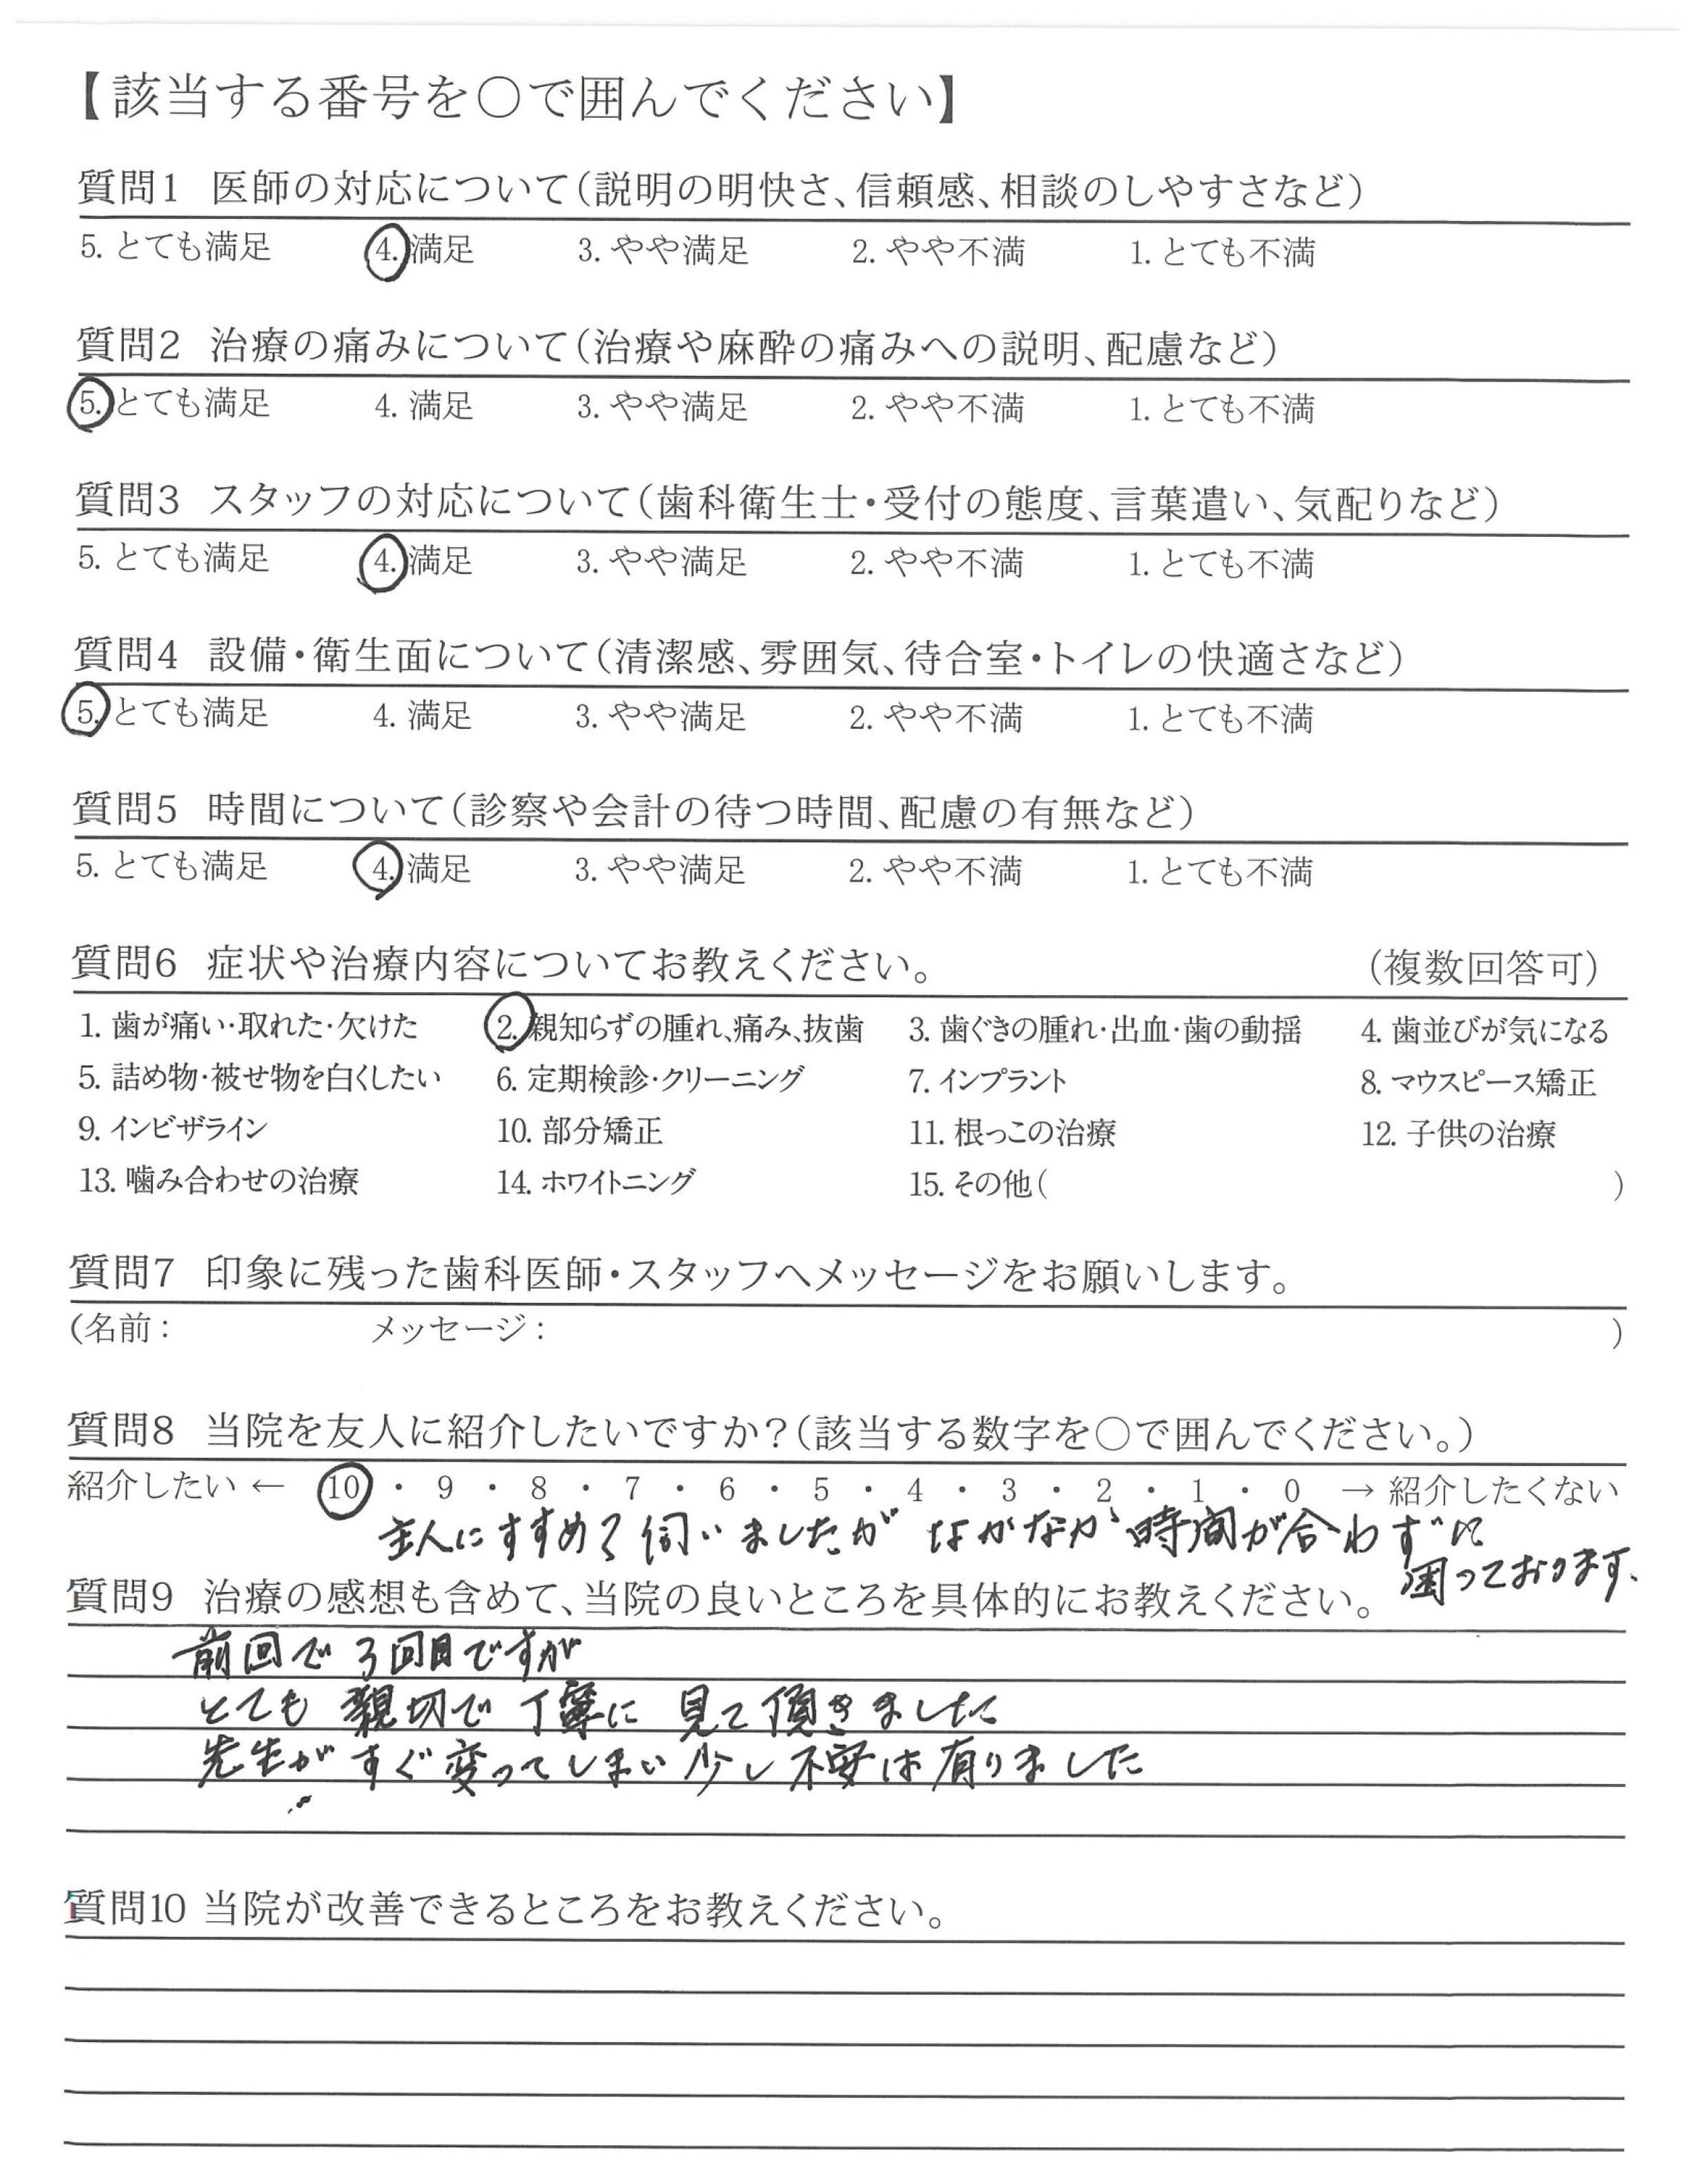 【該当する番号を〇で囲んでください】
質問1 医師の対応について(説明の明快さ、信頼感、相談のしやすさなど)
5. とても満足 4. 満足 3. やや満足 2. やや不満 1. とても不満
質問2 治療の痛みについて(治療や麻酔の痛みへの説明、配慮など)
5. とても満足 4. 満足 3. やや満足 2. やや不満 1. とても不満
質問3 スタッフの対応について(歯科衛生士・受付の態度、言葉遣い、気配りなど)
5. とても満足 4. 満足 3. やや満足 2. やや不満 1. とても不満
質問4 設備・衛生面について(清潔感、雰囲気、待合室・トイレの快適さなど)
5. とても満足 4. 満足 3. やや満足 2. やや不満 1. とても不満
質問5 時間について(診察や会計の待つ時間、配慮の有無など)
5. とても満足 4. 満足 3. やや満足 2. やや不満 1. とても不満
質問6 症状や治療内容についてお教えください。 (複数回答可)
1. 歯が痛い・取れた・欠けた 2. 親知らずの腫れ、痛み、抜歯 3. 歯ぐきの腫れ・出血・歯の動揺 4. 歯並びが気になる
5. 詰め物・被せ物を白くしたい 6. 定期検診・クリーニング 7. インプラント 8. マウスピース矯正
9. インビザライン 10. 部分矯正 11. 根っこの治療 12. 子供の治療
13. 噛み合わせの治療 14. ホワイトニング 15. その他( )
質問7 印象に残った歯科医師・スタッフへメッセージをお願いします。
(名前: メッセージ: )
質問8 当院を友人に紹介したいですか?(該当する数字を〇で囲んでください。)
紹介したい ← 10 ・ 9 ・ 8 ・ 7 ・ 6 ・ 5 ・ 4 ・ 3 ・ 2 ・ 1 ・ 0 → 紹介したくない
主人にすすめて伺いましたが なかなか時間が合わずに
困っております、
質問9 治療の感想も含めて、当院の良いところを具体的にお教えください。
前回で3回目ですが
とても親切で丁寧に見て頂きました
先生がすぐ変ってしまい少し不安は有りました
質問10 当院が改善できるところをお教えください。